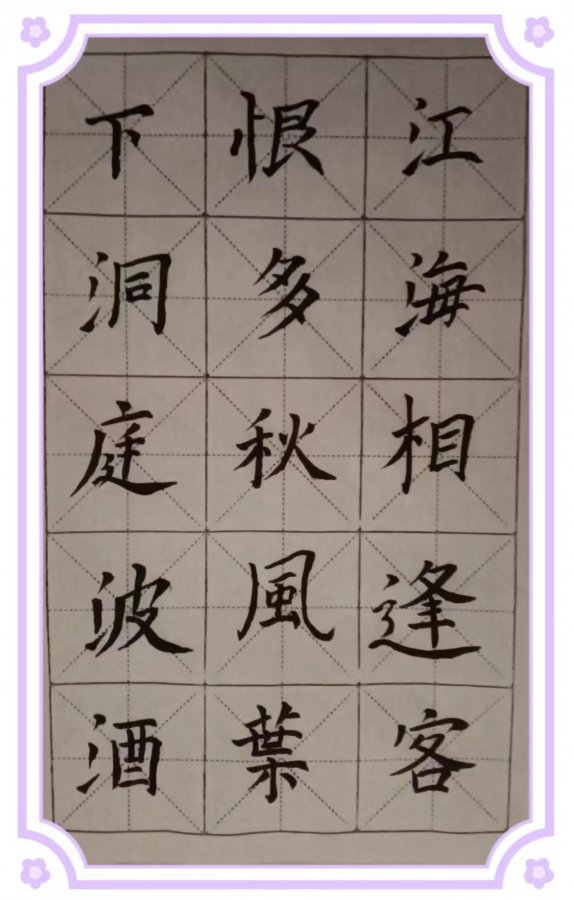 江海相逢客
恨多秋風葉
下洞庭波酒